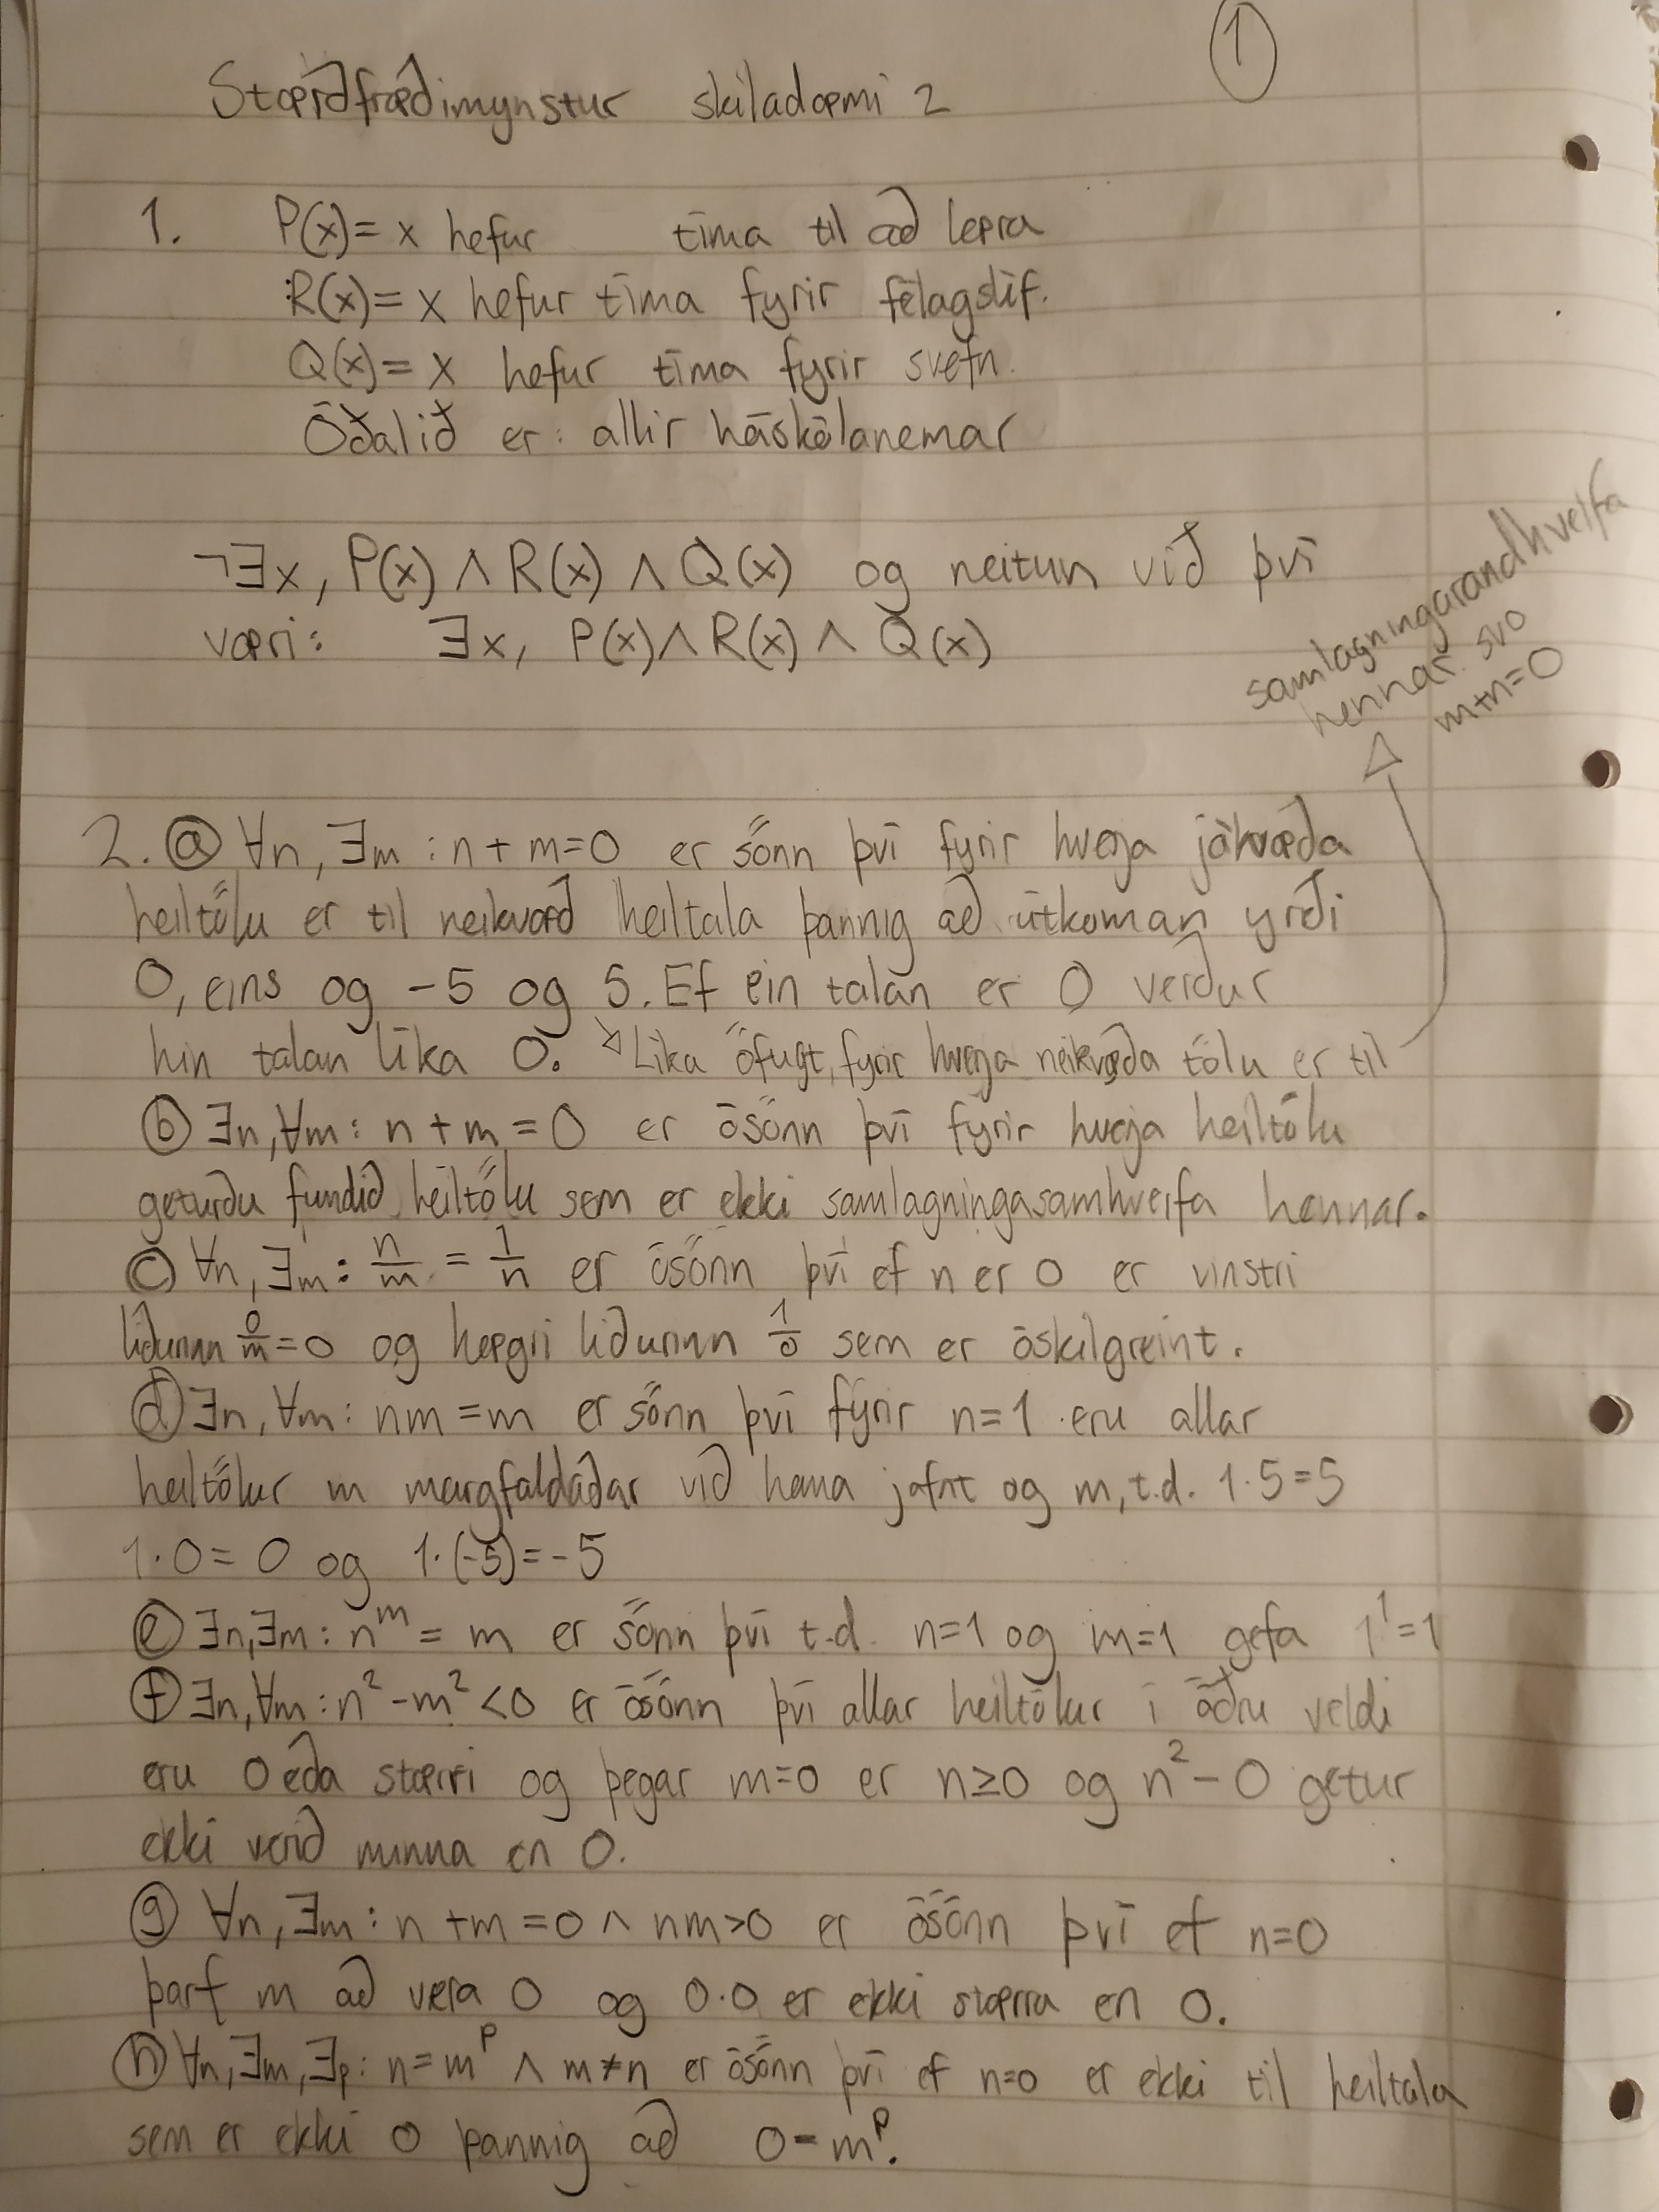 1
Stærðfræðimynstur skiladæmi 2
1. P(x)= x hefur tíma til að læra
R(x)= x hefur tíma fyrir félagslíf.
Q(x)= x hefur tíma fyrir svefn.
Óðalið er: allir háskólanemar
¬∃x, P(x) ∧ R(x) ∧ Q(x) og neitun við því
væri: ∃x, P(x) ∧ R(x) ∧ Q(x)
2. ⓐ ∀n, ∃m : n + m = 0 er sönn því fyrir hverja jákvæða
heiltölu er til neikvæð heiltala þannig að útkoman yrði
0, eins og -5 og 5. Ef ein talan er 0 verður
hin talan líka 0. Líka öfugt, fyrir hverja neikvæða tölu er til
samlagningarandhverfa
hennar svo
m+n=0
ⓑ ∃n, ∀m : n + m = 0 er ósönn því fyrir hverja heiltölu
geturðu fundið heiltölu sem er ekki samlagningasamhverfa hennar.
ⓒ ∀n, ∃m : n/m = 1/n er ósönn því ef n er 0 er vinstri
liðurinn 0/m = 0 og hægri liðurinn 1/0 sem er óskilgreint.
ⓓ ∃n, ∀m : nm = m er sönn því fyrir n=1 eru allar
heiltölur m margfaldaðar við hana jafnt og m, t.d. 1·5=5
1·0=0 og 1·(-5)=-5
ⓔ ∃n, ∃m : n^m = m er sönn því t.d. n=1 og m=1 gefa 1¹=1
ⓕ ∃n, ∀m : n² - m² < 0 er ósönn því allar heiltölur í öðru veldi
eru 0 eða stærri og þegar m=0 er n≥0 og n² - 0 getur
ekki verið minna en 0.
ⓖ ∀n, ∃m : n + m = 0 ∧ nm > 0 er ósönn því ef n=0
þarf m að vera 0 og 0·0 er ekki stærra en 0.
ⓗ ∀n, ∃m, ∃p : n = m^p ∧ m ≠ n er ósönn því ef n=0 er ekki til heiltala
sem er ekki 0 þannig að 0 = m^p.